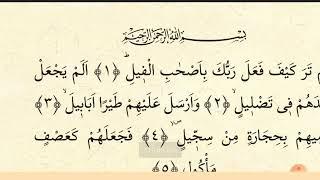 بِسْمِ اللهِ الرَّحْمٰنِ الرَّحِيْمِ
تَرَ كَيْفَ فَعَلَ رَبُّكَ بِاَصْحٰبِ الْفِيْلِ ﴿١﴾ اَلَمْ يَجْعَلْ
فِيْ تَضْلِيْلٍ ﴿٢﴾ وَّاَرْسَلَ عَلَيْهِمْ طَيْرًا اَبَابِيْلَ ﴿٣﴾
بِحِجَارَةٍ مِّنْ سِجِّيْلٍ ﴿٤﴾ فَجَعَلَهُمْ كَعَصْفٍ
مَّاْكُوْلٍ ﴿٥﴾